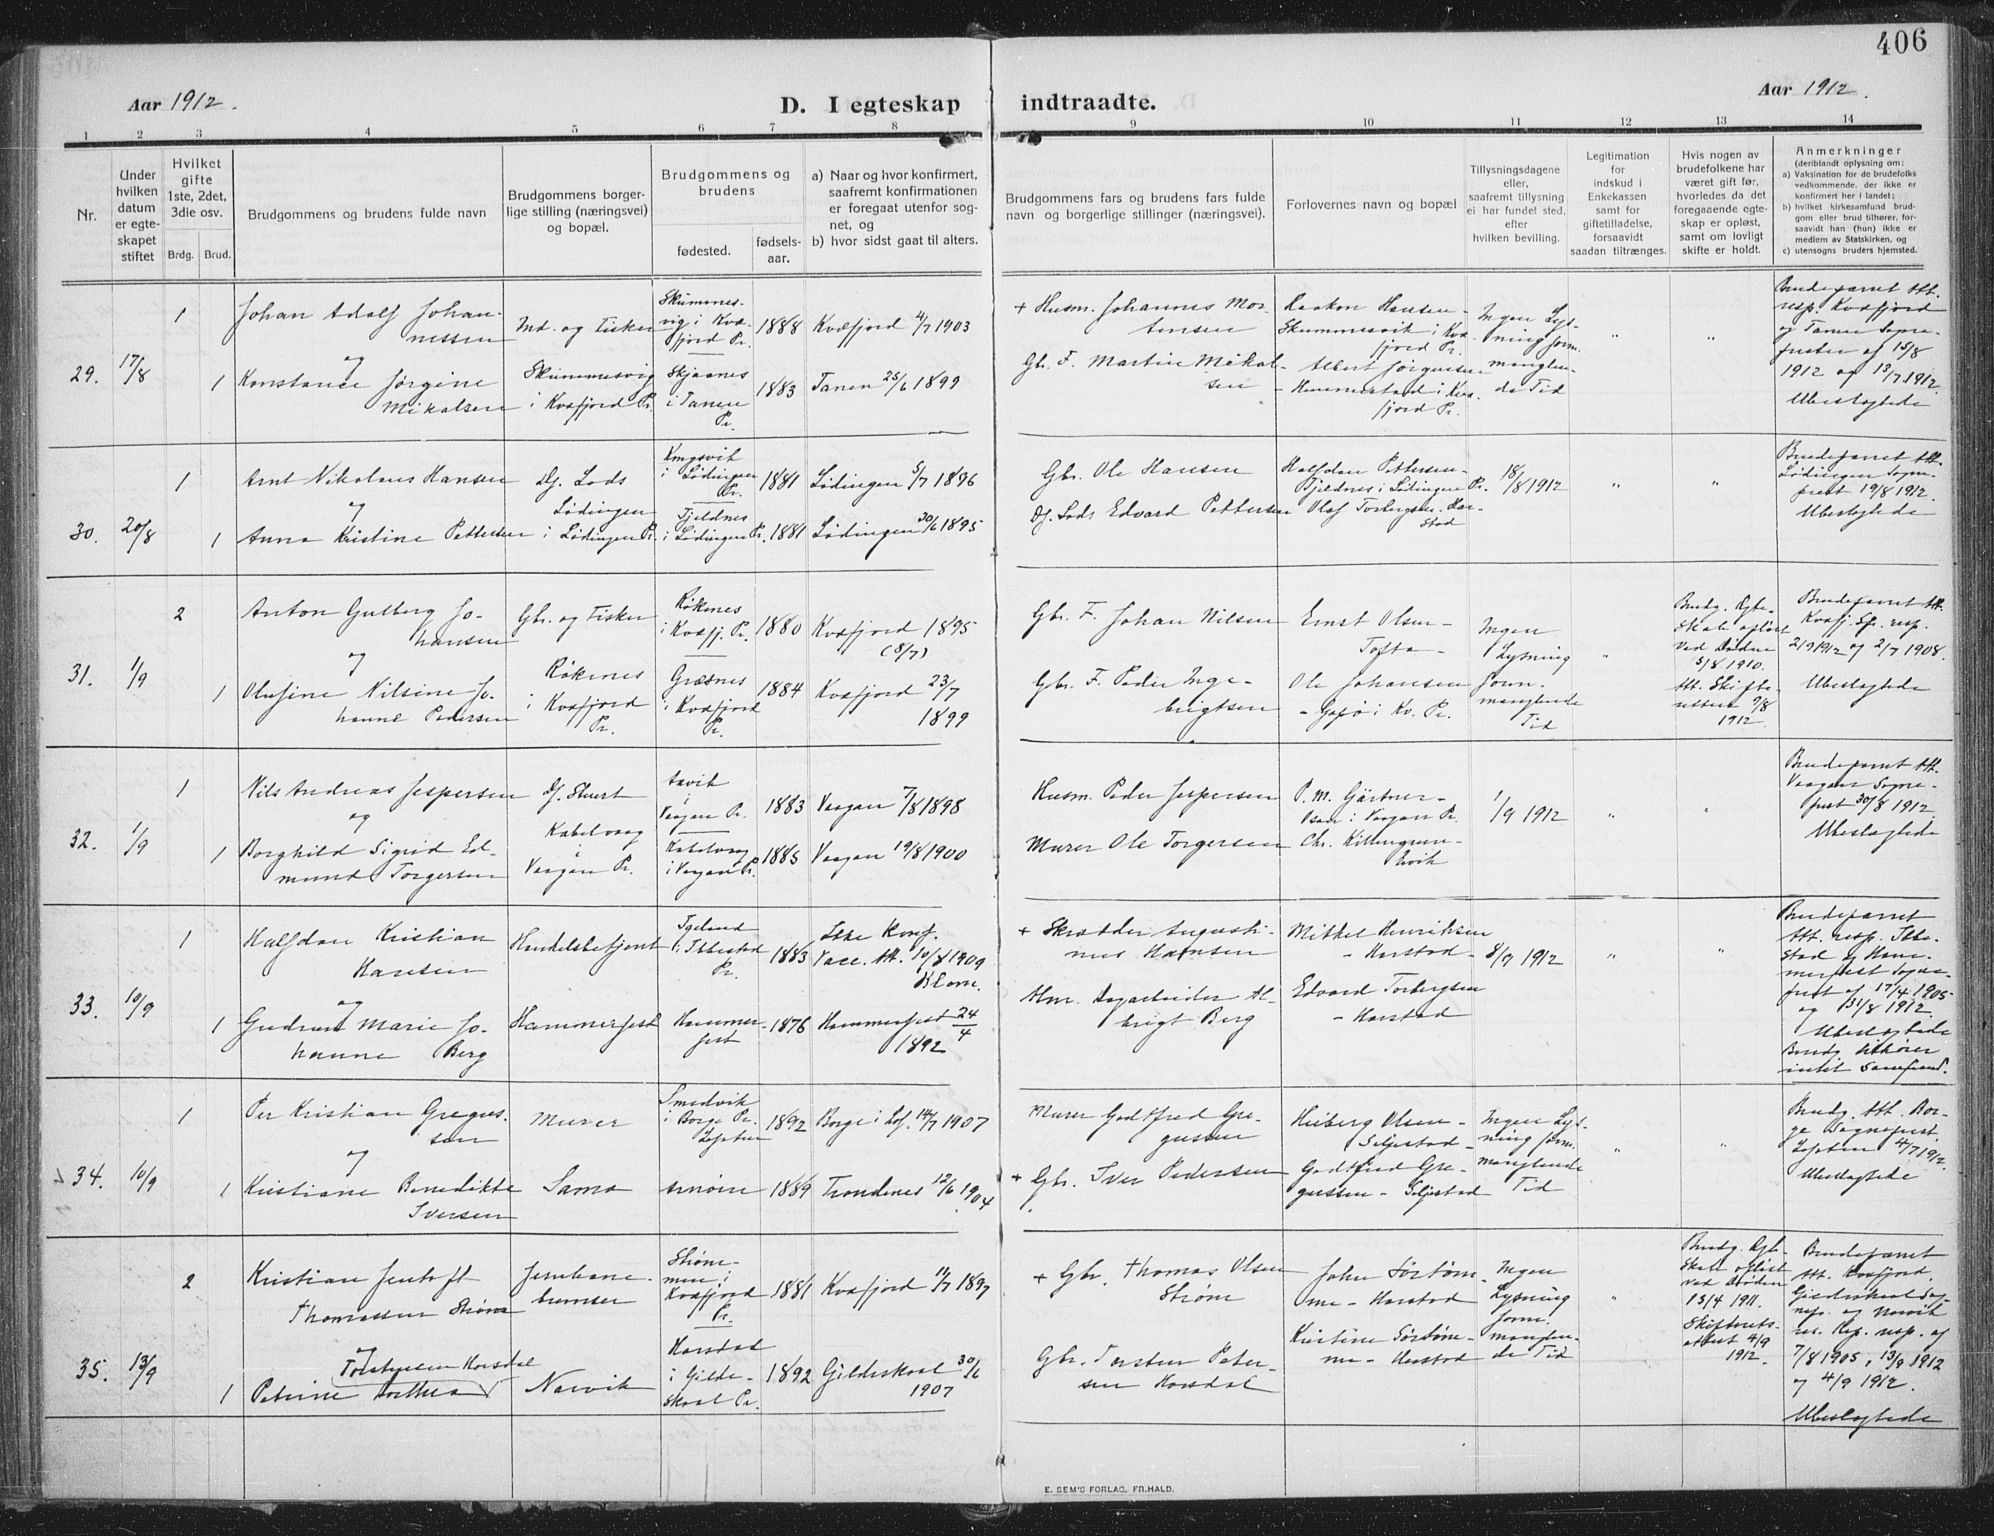 406
Aar 1912.
D. I egteskap indtraadte.
Aar 1912.
1 2 3 4 5 6 7 8 9 10 11 12 13 14
Nr.
Under hvilken datum er egteskapet stiftet
Hvilket gifte 1ste, 2det, 3die osv.
Brdg. Brud.
Brudgommens og brudens fulde navn
Brudgommens borgerlige stilling (næringsvei) og bopæl.
Brudgommens og brudens
fødested.
fødselsaar.
a) Naar og hvor konfirmert, saafremt konfirmationen er foregaat utenfor sognet, og
b) hvor sidst gaat til alters.
Brudgommens fars og brudens fars fulde navn og borgerlige stillinger (næringsvei).
Forlovernes navn og bopæl
Tillysningsdagene eller, saafremt tillysning ei har fundet sted, efter hvilken bevilling.
Legitimation for indskud i Enkekassen samt for giftetilladelse, forsaavidt saadan tiltrænges.
Hvis nogen av brudefolkene har været gift før, hvorledes da det foregaaende egteskap er opløst, samt om lovligt skifte er holdt.
Anmerkninger
(deriblandt oplysning om:
a) Vaksination for de brudefolks vedkommende, der ikke er konfirmert her i landet;
b) hvilket kirkesamfund brudgom eller brud tilhører, forsaavidt han (hun) ikke er medlem av Statskirken, og
c) utensogns bruders hjemsted.
29. 17/8
1
Johan Adolf Johannessen
og
1
Konstance Jørgine Mikalsen
Ind. og Fisker
Skummesvig i Kvæfjord Pr.
Skummesvig i Kvæfjord Pr. 1888 Kvæfjord 4/7 1903
Skjaanes i Tanen Pr. 1883 Tanen 25/6 1899
+ Husm. Johannes Mortinsen
Gbr. F. Martin Mikalsen
Haakon Hansen - Skummesvik i Kvæfjord Pr.
Albert Jørgensen - Hemmestad i Kvæfjord Pr.
Ingen Lysning form. manglende Tid
" "
Brudeparret Att. resp. Kvæfjord og Tanen Sogneprester af 15/8 1912 og 13/7 1912
Ubeslægtede
30. 20/8
1
Arnt Nikolaus Hansen
og
1
Anna Kristine Pettersen
Dj. Lods
Lødingen i Lødingen Pr.
Kongsvik i Lødingen Pr. 1881 Lødingen 5/7 1896
Fjeldnes i Lødingen Pr. 1881 Lødingen 30/6 1895
Gbr. Ole Hansen
Dj. Lods Edvard Pettersen
Halfdan Pettersen - Fjeldnes i Lødingen Pr.
Olaf Torbergsen - Harstad
18/8 1912
" "
Brudeparret Att. Lødingen Sogneprest 19/8 1912.
Ubeslægtede
31. 1/9
2
Anton Gulberg Johansen
og
1
Olufine Nilsine Johanne Pedersen
Gbr. og Fisker
Røkenes i Kvæfjord Pr.
Røkenes i Kvæfj. Pr. 1880 Kvæfjord 1895 (5/7)
Græsnes i Kvæfjord Pr. 1884 Kvæfjord 23/7 1899
Gbr. F. Johan Nilsen
Gbr. F. Peder Ingebrigtsen
Ernst Olsen - Tofta -
Ole Johansen - Gapø i Kv. Pr.
Ingen Lysning form. manglende Tid
"
Brudg. Egteskab opløst ved Døden 31/8 1910. Att. Skifteretten 9/8 1912.
Brudeparret Att. Kvæfj. Spr. resp. 2/9 1912 og 2/7 1908.
Ubeslægtede
32. 1/9
1
Nils Andreas Jespersen
og
1
Borghild Sigrid Edmund Torgersen
Dj. Stuert
Kabelvaag i Vaagan Pr.
Aavik i Vaagan Pr. 1883 Vaagan 7/8 1898
Kabelvaag i Vaagan Pr. 1885 Vaagan 19/8 1900
Husm. Peder Jespersen
Murer Ole Torgersen
P. M. Gärtner - Osan i Vaagan Pr.
Chr. Killengreen
1/9 1912
" "
Brudeparret Att. Vaagan Sogneprest 30/8 1912
Ubeslægtede
33. 10/9
1
Halfdan Kristian Hansen
og
1
Gudrun Marie Johanne Berg
Handelsbetjent
Hammerfest
Igeland i Ibbestad Pr. 1883 Ikke konf. Vacc. Att. 10/8 1909
Hammerfest 1876 Hammerfest 24/4 1892
+ Skrædder Augustinus Hansen
Hm. Dagarbeider Albrigt Berg
Mikkel Henriksen - Harstad -
Edvard Torbergsen - Harstad
8/9 1912
" "
Brudeparret Att. resp. Ibbestad og Hammerfest Sogneprest af 17/4 1905 og 31/8 1912.
Ubeslægtede
Brudg. tilhører intet Samfund.
34. 10/9
1
Per Kristian Gregussen
og
1
Kristiane Benedikte Iversen
Murer
Sama
Smedvik i Borge Pr. Lofoten 1892 Borge i Lof. 14/7 1907
1889 Trondenes 12/6 1904
Murer Godtfred Gregussen
+ Gbr. Iver Pedersen
Heiberg Olsen - Seljestad -
Godtfred Gregussen - Seljestad
Ingen Lysning form. manglende Tid
" "
Brudg. Att. Borge Sogneprest, Lofoten 4/7 1912.
Ubeslægtede
35. 13/9
2
Kristian Jentoft Thomassen Strøm
og
1
Petrine Dorthea Torstensen Horsdal
Jernbanebremser
Narvik
Strømmen i Kvæfjord Pr. 1881 Kvæfjord 11/7 1897
Horsdal i Gildeskaal Pr. 1892 Gildeskaal 30/6 1907
+ Gbr. Thomas Olsen Strøm
Gbr. Torsten Petersen Horsdal
John Sørtømme - Harstad
Kirstine Sørtømme - Harstad
Ingen Lysning form. manglende Tid
"
Brudg. Egteskab opløst ved Døden 13/4 1911. Skifterets-attest 4/9 1912.
Brudeparret Att. Kvæfjord, Gildeskaal Sognepr. og Narvik res. Kap. resp. af 7/8 1905, 13/9 1912 og 4/9 1912.
Ubeslægtede
E. SEM'S FORLAG, FR.HALD.